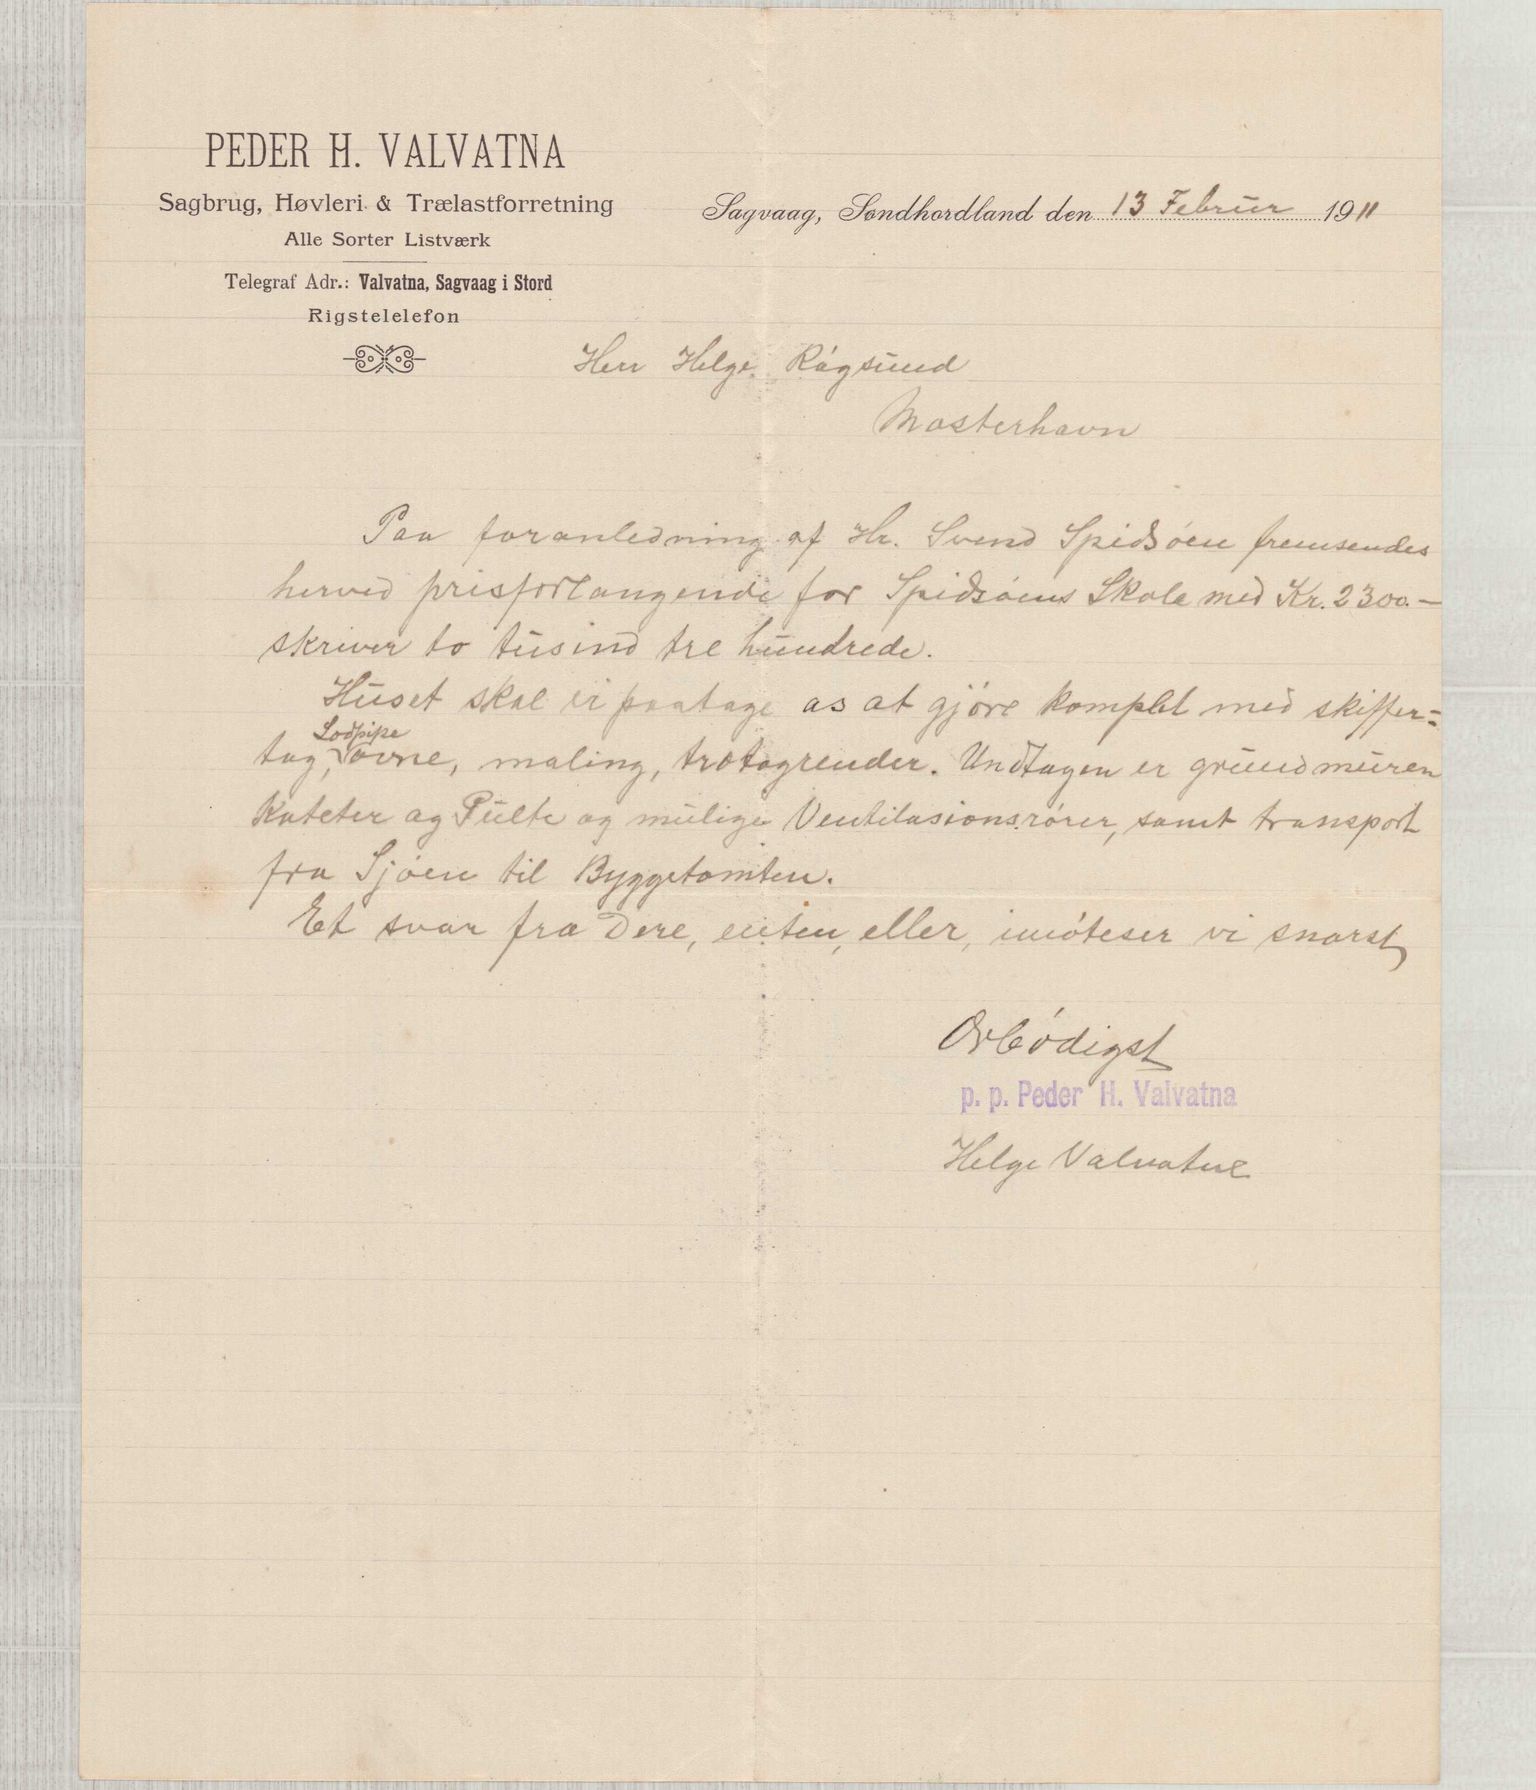 PEDER H. VALVATNA
Sagbrug, Høvleri & Trælastforretning
Alle Sorter Listværk
Telegraf Adr.: Valvatna, Sagvaag i Stord
Rigstelelefon
Sagvaag, Søndhordland den 13 Februr 1911
Herr Helge Rágsund
Mosterhavn
Paa foranledning af Hr. Svend Spidsøen fremsendes
herved prisforlangende for Spidsøens Skole med Kr. 2300.—
skriver to tusind tre hundrede.
Huset skal vi paatage os at gjøre komplet med skiffer=
Lodpipe
tag, ovne, maling, trotagrender. Undtagen er grundmuren
Kateter og Pulte og mulige Ventilasionsrører, samt transport
fra Sjøen til Byggetomten.
Et svar fra Dere, enten, eller, imøteser vi snarst
Ørbødigst
p. p. Peder H. Valvatna
Helge Valvatne